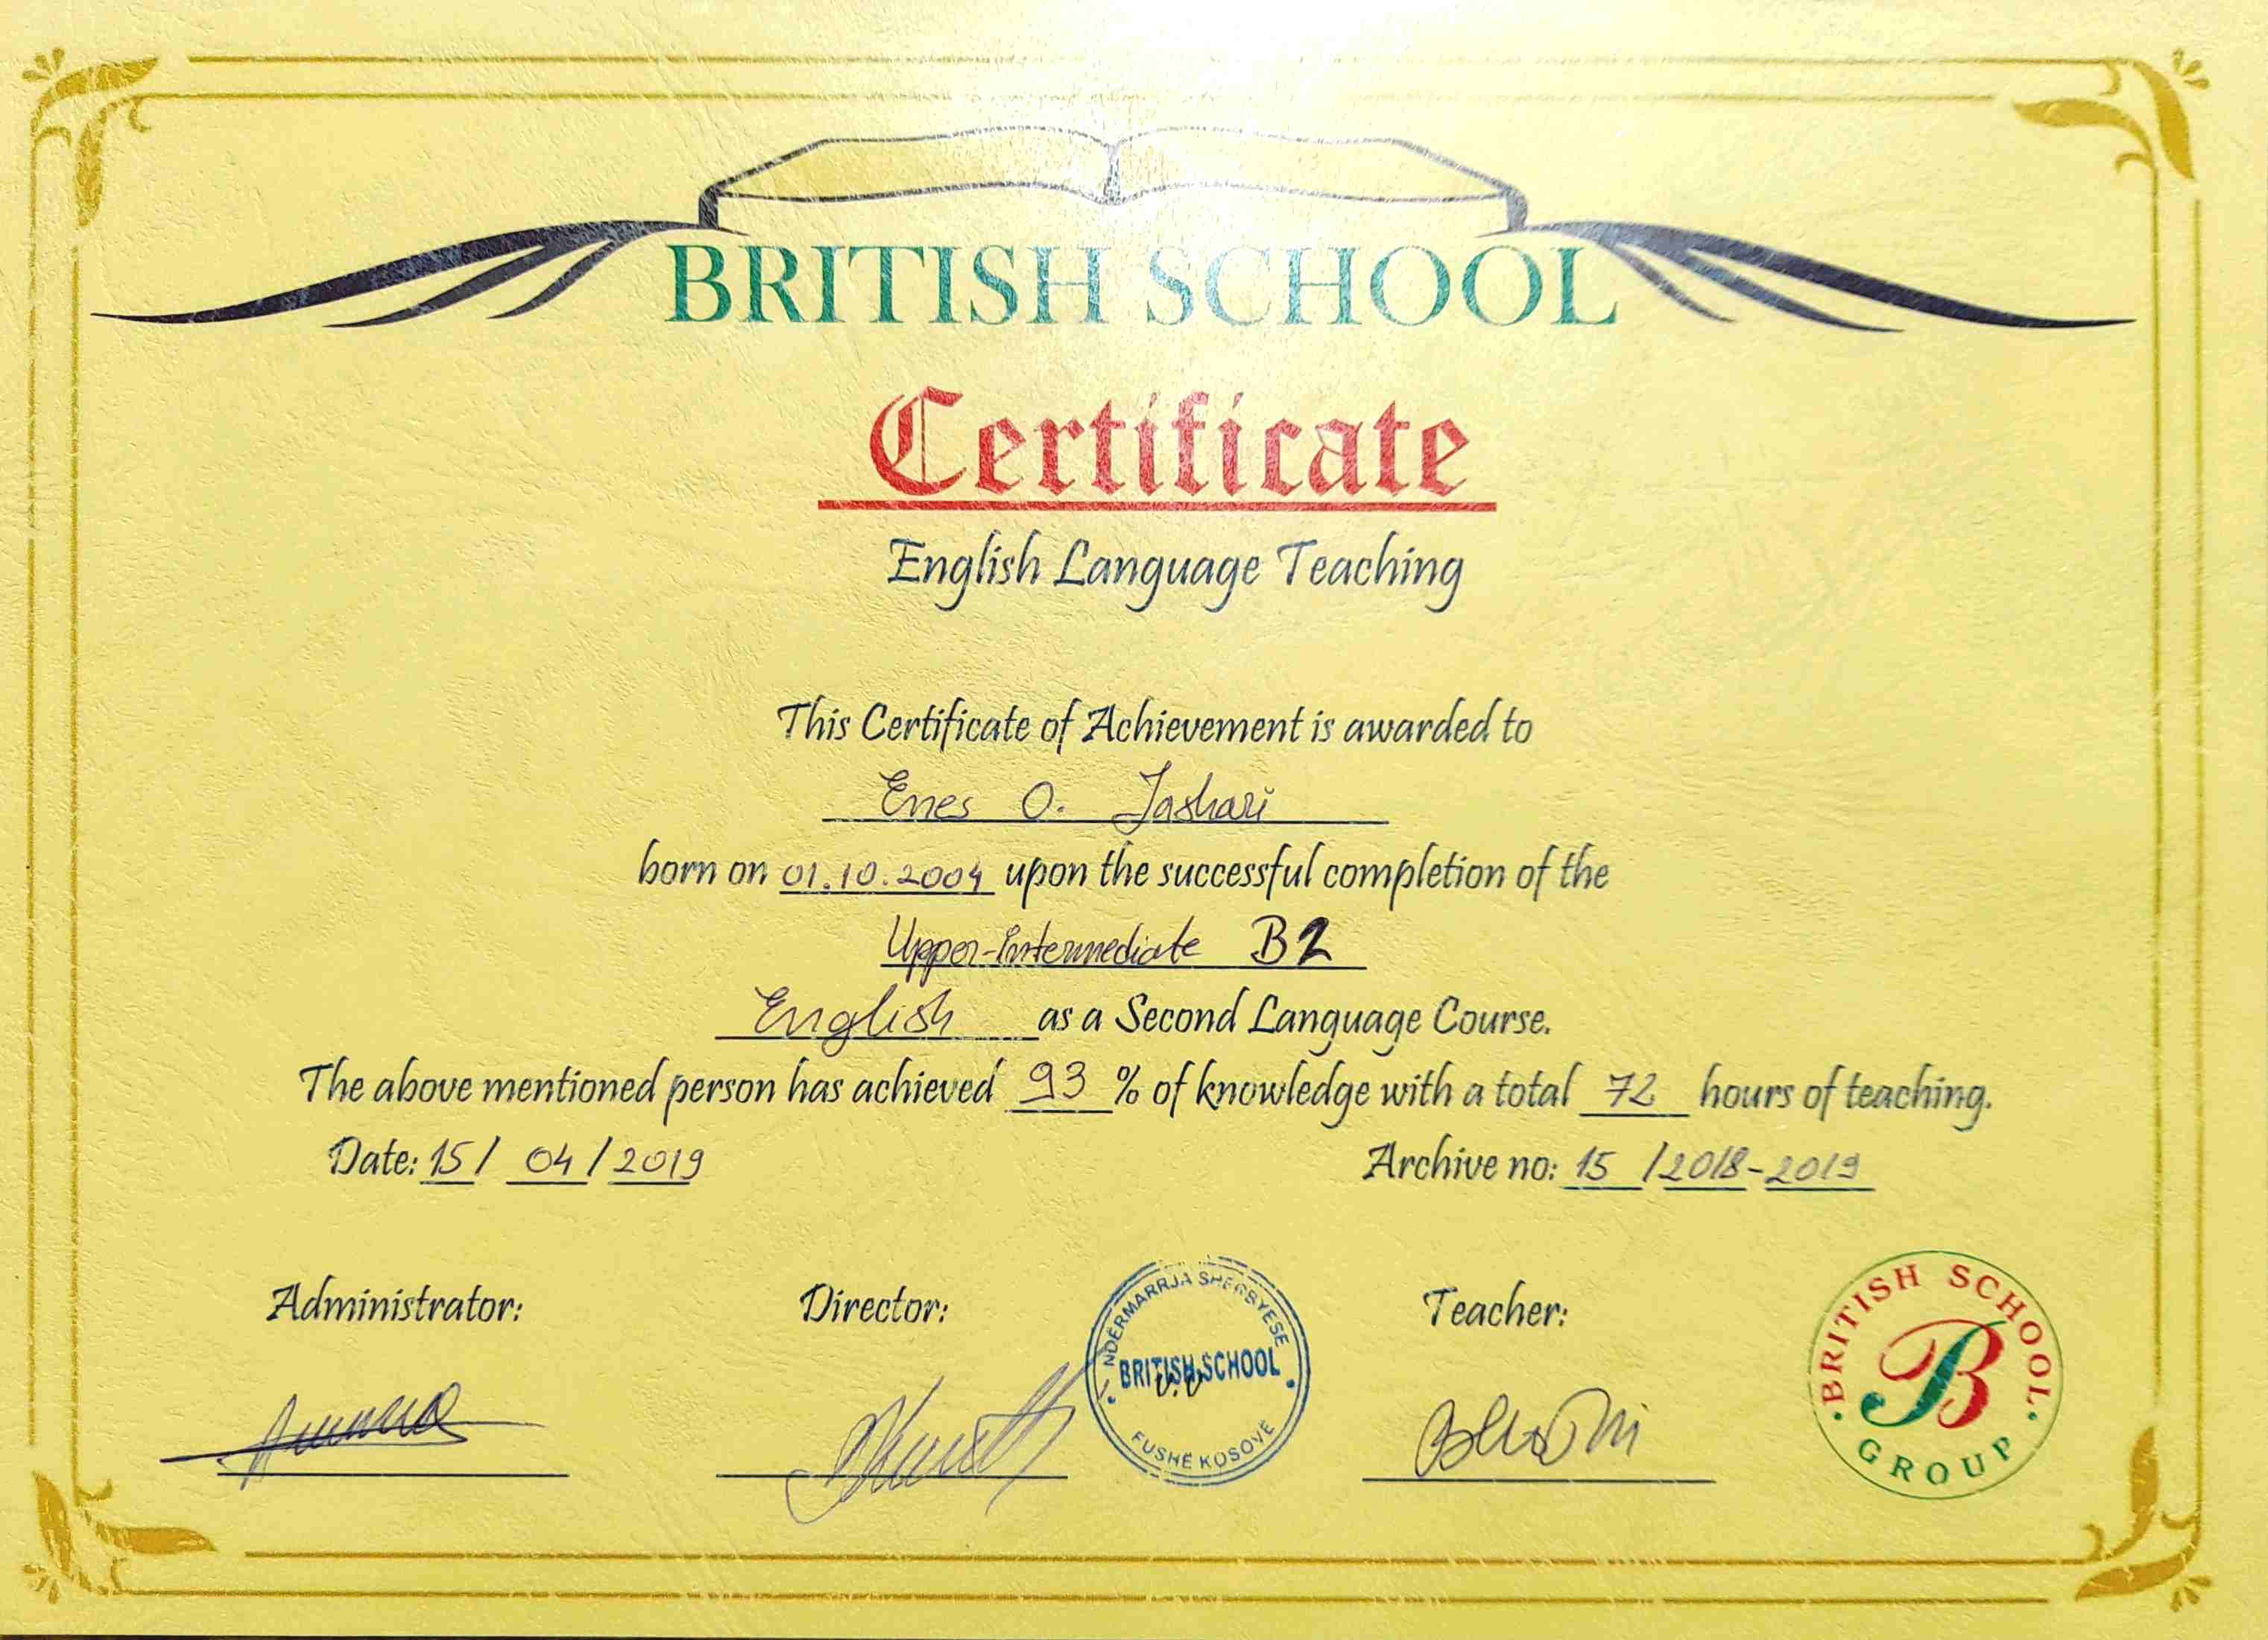 BRITISH SCHOOL
Certificate
English Language Teaching
This Certificate of Achievement is awarded to
Enes O. Jashari
born on 01.10.2004 upon the successful completion of the
Upper-Intermediate B2
English as a Second Language Course.
The above mentioned person has achieved 93 % of knowledge with a total 72 hours of teaching.
Date: 15/ 04/2019
Archive no: 15 /2018-2019
Administrator:
Director:
NDËRMARRJA SHËRBYESE
BRITISH SCHOOL
FUSHË KOSOVË
Teacher:
BRITISH SCHOOL
B
GROUP